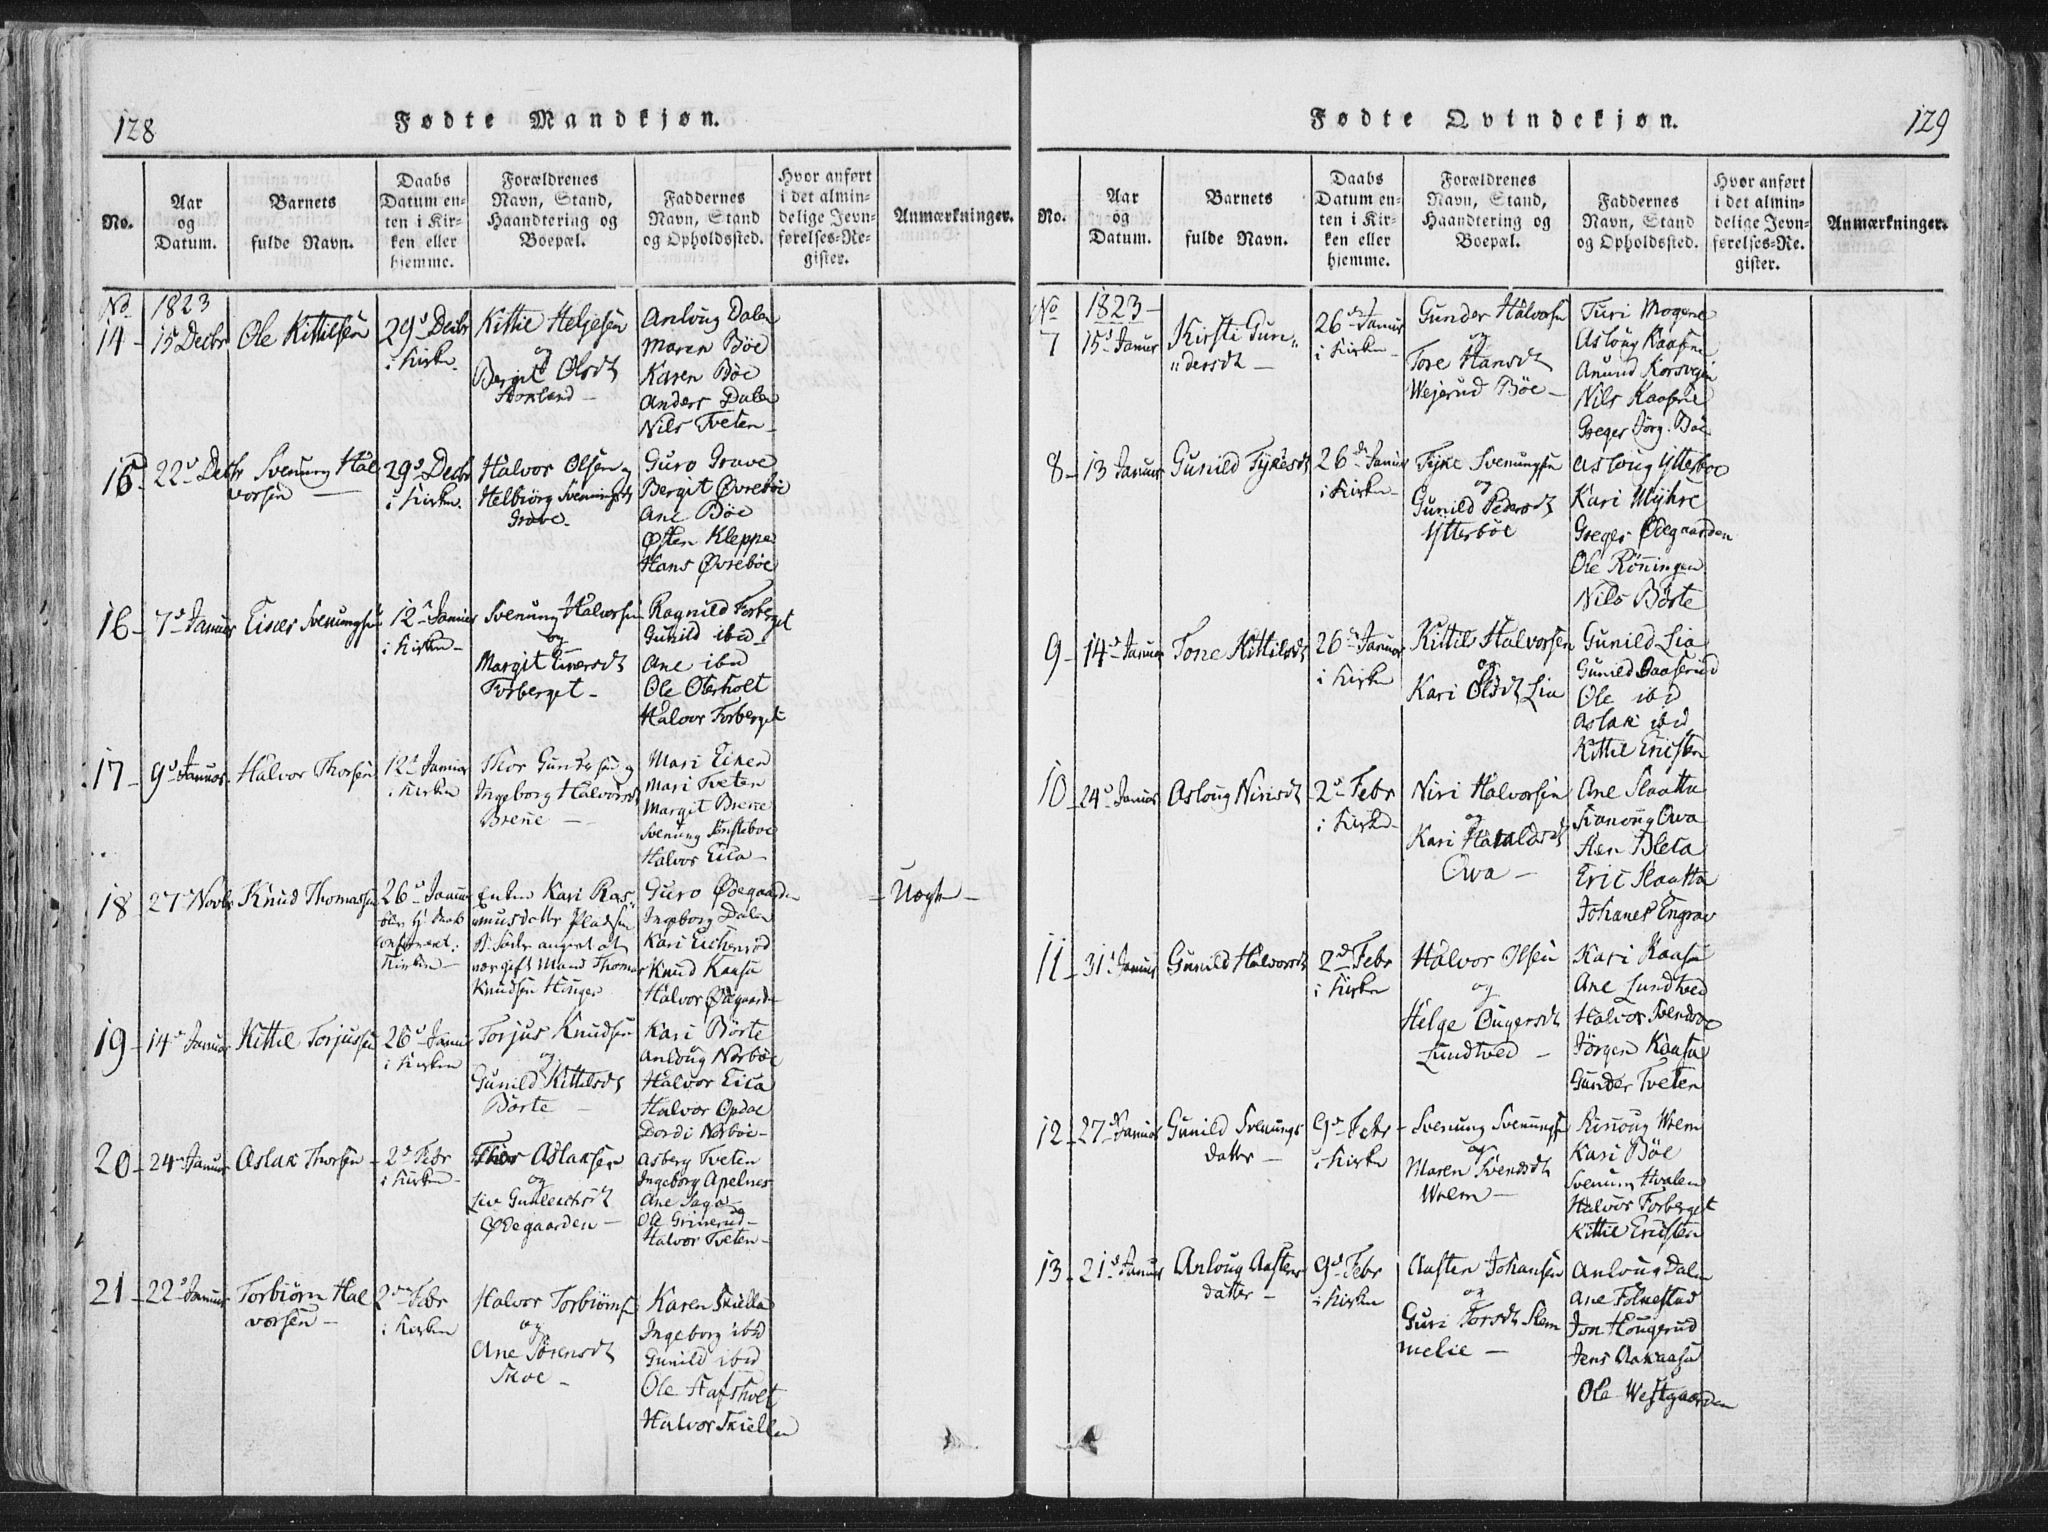 128
Fødte Mandkjøn.
No.
Aar og Datum.
Barnets fulde Navn.
Daabs Datum enten i Kirken eller hjemme.
Forældrenes Navn, Stand, Haandtering og Boepæl.
Faddernes Navn, Stand og Opholdssted.
Hvor anført i det almindelige Jevnførelses-Register.
Anmærkninger.
No 1823
14 - 15 Decbr
Ole Kittilsen
29d Decbr
i Kirken
Kittil Heljesen
og
Bergit Olsdt
Anloug Dalen
Maren Böe
Karen Böe
Anders Dalen
Nils Tveten
15 - 22d Decbr
Svenung Hal
vorsen
29d Decbr
i Kirken
Halvor Olsen og
Helbiörg Svenningsdt
Grave
Guro Grave
Bergit Øvreböe
Ane Böe
Østen Kleppe
Hans Øvreböe
16 - 7d Januar
Einar Svenungsen
12d Januar
i Kirken
Svenung Halvorsen
og
Margit Einersdt
Forberget
Ragnild Forberget
Gunild ibid
Ane ibid
Ole Oterholt
Halvor Forberget
17 - 9d Januar
Halvor Thorsen
12d Januar
i Kirken
Thor Gundersen og
Ingeborg Halvorsdt
Brene
Mari Eiken
Mari Tveten
Margit Brene
Svenung Jønsteboe
Halvor Eica
18 - 27 Novbr
Knud Thomassen
26d Januar
Kirken
Enken Kari Ras-
musdatter Pladsen
Knudsen Hauger
Guro Ødegaarden
Ingeborg Dalen
Kari Eichenröd
Knud Kaasa
Halvor Ødegaarden
- Uægte -
19 - 14d Januar
Kittil Torjussen
26d Januar
i Kirken
Torjus Knudsen
og
Gunild Kittilsdt
Börte
Kari Börte
Anloug Norböe
Halvor Eica
Halvor Opdal
Dordi Norböe
20 - 24d Januar
Aslak Thorsen
2d Febr
i Kirken
Thor Aslaksen
og
Liv Gunleichsdt
Ødegaarden
Asberg Tveten
Ingeborg Apelnes
Ane Saga
Ole Grinerud
Halvor Tveten
21 - 22d Januar
Torbiörn Hal
vorsen
2den Febr
i Kirken
Halvor Torbiörnsen
og
Ane Sörensdt
Skoe
Karen Skiellea
Ingeborg ibid
Gunild ibid
Ole Hafsholt
Halvor Skiellen
129
Fødte Qvindekjøn.
No.
Aar og Datum.
Barnets fulde Navn.
Daabs Datum enten i Kirken eller hjemme.
Forældrenes Navn, Stand, Haandtering og Boepæl.
Faddernes Navn, Stand og Opholdssted.
Hvor anført i det almindelige Jevnførelses-Register.
Anmærkninger.
No 1823
7 15d Januar
Kirsti Gun
dersdt
26d Januar
i Kirken
Gunder Halvorsen
og
Tore Hansdt
Wejerud Böe
Turi Mogene
Asloug Kaasene
Anund Korsvejen
Nils Kaasene
Greger Jörg. Böe
8 - 13 Januar
Gunild Tÿkesdt
26d Januar
i Kirken
Tÿke Svenungsen
og
Gunild Pedersdt
Ytterböe
Asloug Ytterboe
Kari Mÿhre
Greger Ødegaarden
Ole Röningen
Nils Börte
9 - 14d Januar
Tone Kittilsdt
26d Januar
i Kirken
Kittil Halvorsen
og
Kari Olsdt Lia
Gunild Lia
Ole ibid
Aslak ibid
Kittil Eriksten
10 - 24d Januar
Asloug Nirisdt
2d Febr
i Kirken
Niri Halvorsen
og
Kari Haraldsdt
Owa
Ane Slaatta
Svanaug Owa
Sten Bleka
Eric Slaatta
Johanes Engrav
11 - 31d Januar
Gunild Halvorsdt
2d Febr
i Kirken
Halvor Olsen
og
Helge Ougersdt
Lundtved
Kari Kaasa
Ane Lundtved
Jörgen Kaasa
Gunder Tveten
12 - 27d Januar
Gunild Svenungs
datter
9d Febr
i Kirken
Svenung Svenungsen
og
Maren Svendsdt
Wrem
Rinoug Wrem
Kari Böe
Svenung Hvalen
Halvor Forberget
Kittil Eriksten
13 - 21d Januar
Anloug Aastens
datter
9d Febr
i Kirken
Aasten Johansen
og
Guri Torsdt Slem
melie
Anloug Dalen
Ane Folkestad
Jon Hougerud
Jens Aakaasa
Ole Westgaarden